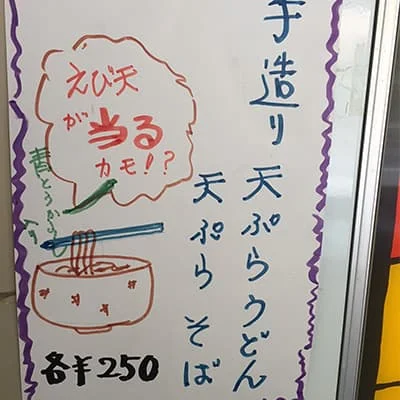 手造り 天ぷらうどん
天ぷら そば
えび天
が 当る
カモ!?
青とうがらし
入り
各¥250